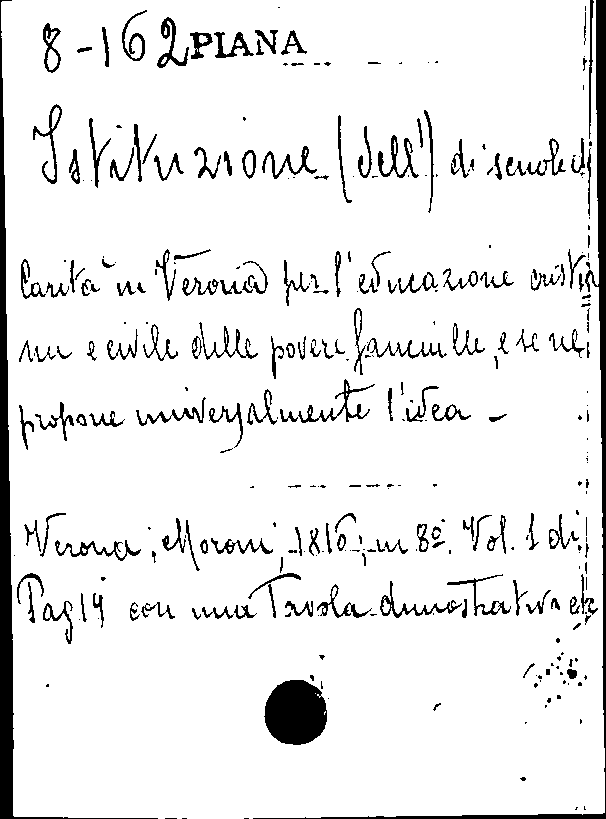 8-162 PIANA
Istituzione (dell') di scuole di
Carità in Verona per l'educazione cristia
na e civile delle povere fanciulle, e se ne
propone universalmente l'idea -
Verona, Moroni, 1816, in 8º. Vol. 1 di
Pag 14 con una Tavola dimostrativa